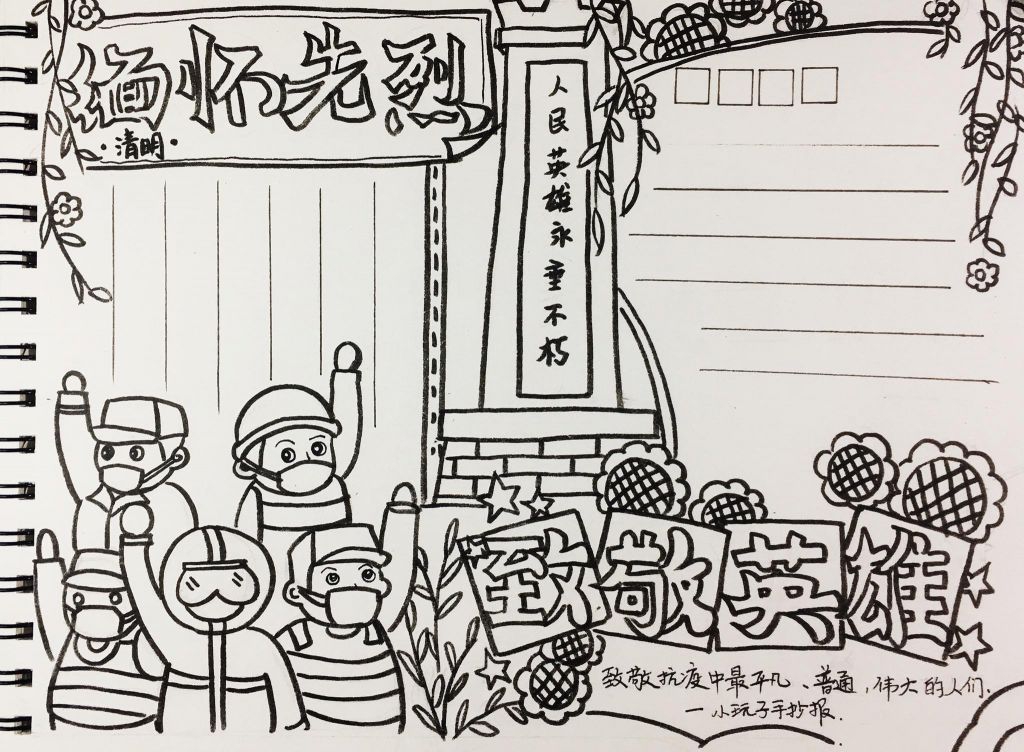 缅怀先烈
·清明·
人民英雄永垂不朽
致敬英雄
致敬抗疫中最平凡、普通，伟大的人们.
一小玩子手抄报.